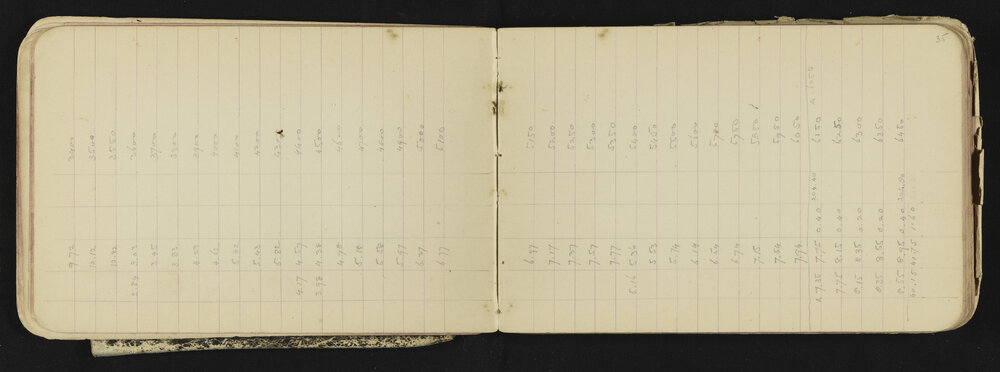 9.72 3400
10.12 3500
10.32 3550
2.84 3.03 3600
3.45 3700
3.83 3800
4.23 3900
4.62 4000
5.02 4100
5.43 4200
5.82 4300
4.17 4.59 4400
3.98 4.38 4500
4.78 4600
5.18 4700
5.58 4800
5.97 4900
6.37 5000
6.77 5100
35
6.97 5150
7.17 5200
7.37 5250
7.57 5300
7.77 5350
5.16 5.36 5400
5.53 5450
5.74 5500
6.14 5600
6.54 5700
6.74 5750
7.15 5850
7.54 5950
7.94 6050
7.35 7.75 0.40 204.40 6150
7.75 8.15 0.40 6250
8.15 8.35 0.20 6300
8.35 8.55 0.20 6350
8.55 8.95 0.40 6450
40.15 41.75 1.60